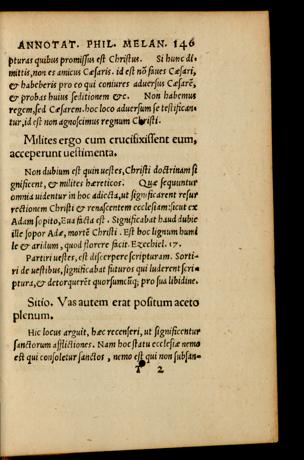 ANNOTAT. PHIL. MELAN. 146
pturas quibus promissus est Christus. Si hunc di-
mittis, non es amicus Cæsaris. id est nõ faues Cæsari,
& habeberis pro eo qui coniures aduersus Cæsarẽ,
& probas huius seditionem &c. Non habemus
regem, sed Cæsarem. hoc loco aduersum se testifican-
tur, id est non agnoscimus regnum Christi.
Milites ergo cum crucifixissent eum,
acceperunt uestimenta.
Non dubium est quin uestes, Christi doctrinam si
gnificent, & milites hæreticos. Quæ sequuntur
omnia uidentur in hoc adiecta, ut significarent resur
rectionem Christi & renascentem ecclesiam: sicut ex
Adam sopito, Eua facta est. Significabat haud dubie
ille sopor Adæ, mortẽ Christi. Est hoc lignum humi
le & aridum, quod florere facit. Ezechiel. 17.
Partiri uestes, est discerpere scripturam. Sorti-
ri de uestibus, significabat futuros qui luderent scri-
ptura, & detorquerēt quorsumcūq; pro sua libidine.
Sitio. Vas autem erat positum aceto
plenum.
Hic locus arguit, hæc recenseri, ut significentur
sanctorum afflictiones. Nam hoc statu ecclesiæ nemo
est qui consoletur sanctos, nemo est qui non subsan-
T 2